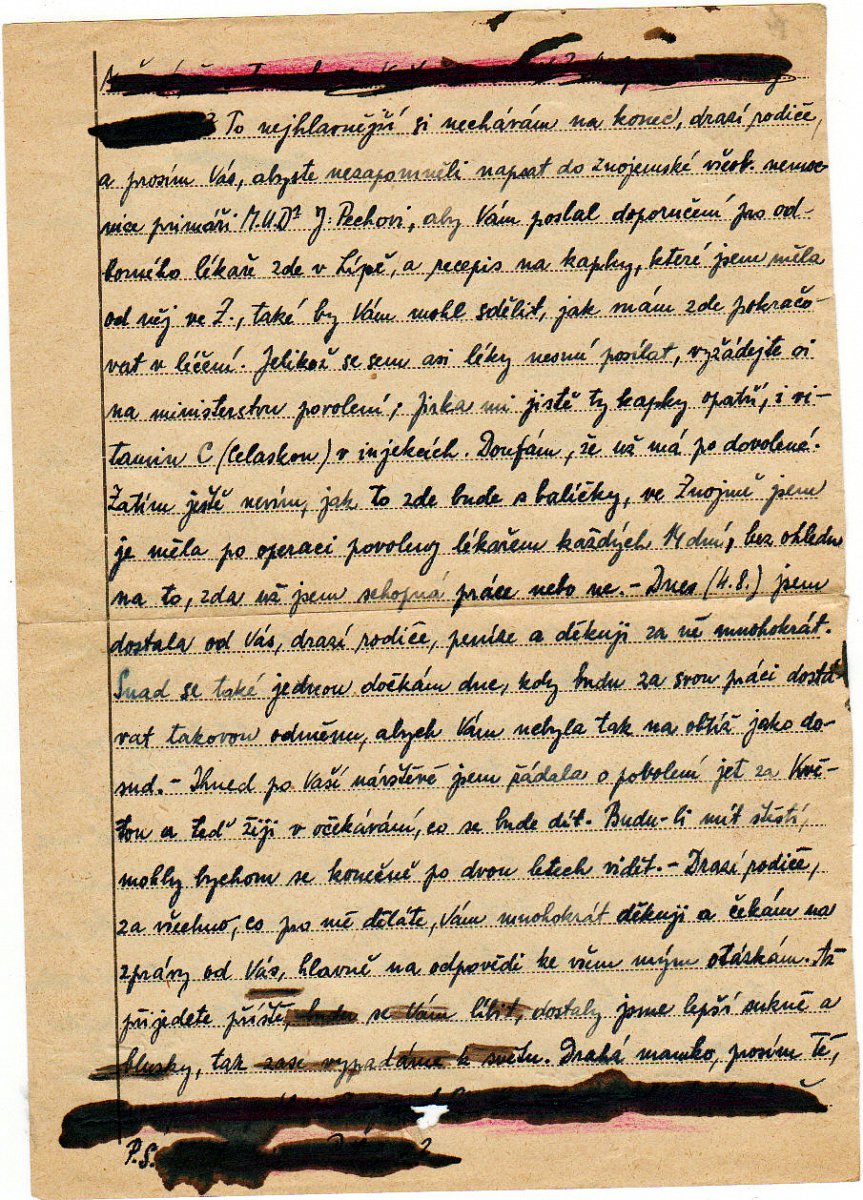 To nejhlavnější si nechávám na konec, drazí rodiče,
a prosím Vás, abyste nezapomněli napsat do Znojemské všeob. nemoc-
nice primáři M.U.Dr J. Pechovi, aby Vám poslal doporučení pro od-
borného lékaře zde v Lípě, a recepis na kapky, které jsem měla
od něj ve Z., také by Vám mohl sdělit, jak mám zde pokračo-
vat v léčení. Jelikož se sem asi léky nesmí posílat, vyžádejte si
na ministerstvu povolení; Jirka mi jistě ty kapky opatří, i vi-
tamin C (Celaskon) v injekcích. Doufám, že už má po dovolené.
Zatím ještě nevím, jak to zde bude s balíčky, ve Znojmě jsem
je měla po operaci povoleny lékařem každých 14 dní, bez ohledu
na to, zda už jsem schopná práce nebo ne. - Dnes (4.8.) jsem
dostala od Vás, drazí rodiče, peníze a děkuji za ně mnohokrát.
Snad se také jednou dočkám dne, kdy budu za svou práci dostá-
vat takovou odměnu, abych Vám nebyla tak na obtíž jako do-
sud. - Ihned po Vaší návštěvě jsem žádala o povolení jet za Kvě-
tou a teď žiji v očekávání, co se bude dít. Budu-li mít štěstí,
mohly bychom se konečně po dvou letech vidět. - Drazí rodiče,
za všechno, co pro mě děláte, Vám mnohokrát děkuji a čekám na
zprávy od Vás, hlavně na odpovědi ke všem mým otázkám. Až
přijedete příště, budu se Vám líbit, dostaly jsme lepší sukně a
blusky, tak zase vypadáme k světu. Drahá mamko, prosím Tě,
P.S.